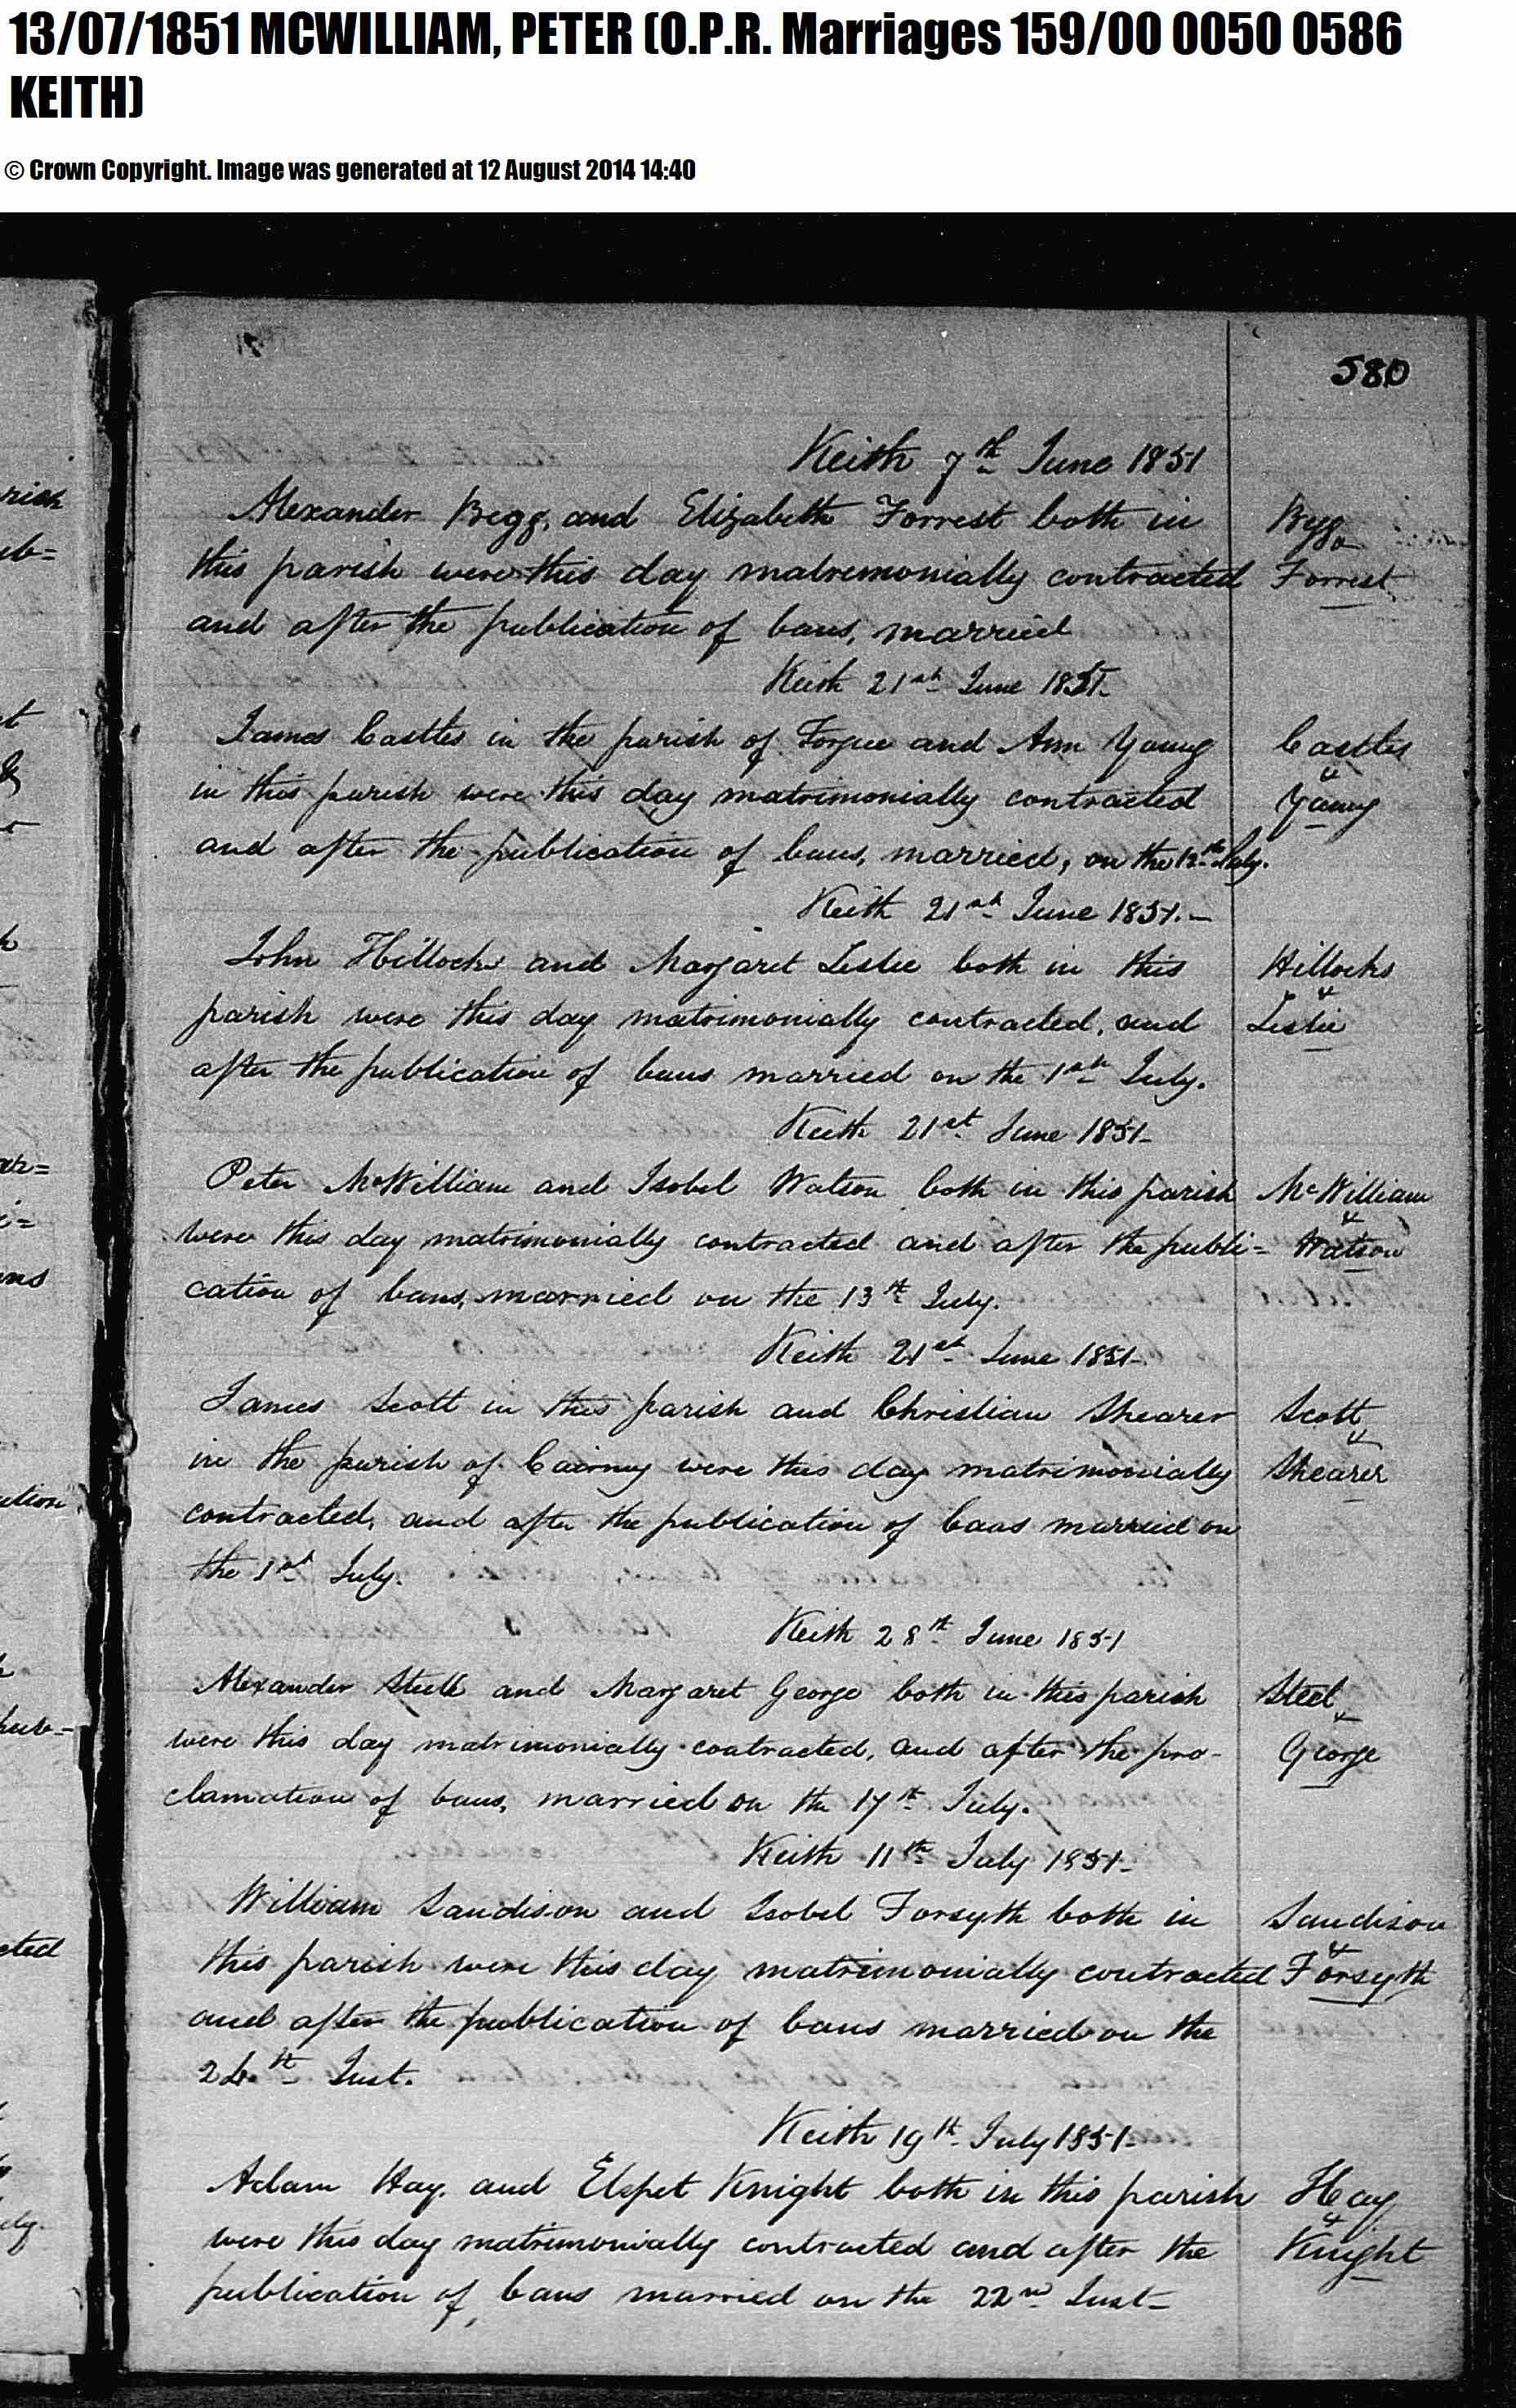 13/07/1851 MCWILLIAM, PETER (O.P.R. Marriages 159/00 0050 0586
KEITH)
© Crown Copyright. Image was generated at 12 August 2014 14:40
580
Keith 7th June 1851
Alexander Begg, and Elizabeth Forrest both in Begg
this parish were this day matremonially contracted Forrest
and after the publication of bans, married
Keith 21st June 1851.
James Castles in the parish of Forgue and Ann Young Castles
&
in this parish were this day matrimonially contracted Young
and after the publication of bans, married, on the 12th July.
Keith 21st June 1851.
John Hillocks and Margaret Leslie both in this Hillocks
&
parish were this day matrimonially contracted, and Leslie
after the publication of bans married on the 1st July.
Keith 21st June 1851
Peter McWilliam and Isobel Watson both in this parish McWilliam
&
were this day matrimonially contracted and after the publi= Watson
cation of bans, married on the 13th July.
Keith 21st June 1851
James Scott in this parish and Christian Shearer Scott
&
in the parish of Cairney were this day matrimonially Shearer
contracted, and after the publication of bans married on
the 1st July.
Keith 28th June 1851
Alexander Steel and Margaret George both in this parish Steel
&
were this day matrimonially contracted, and after the pro-
George
clamation of bans, married on the 17th July.
Keith 11th July 1851
William Sandison and Isobel Forsyth both in Sandison
&
this parish were this day matrimonially contracted Forsyth
and after the publication of bans married on the
24th Inst.
Keith 19th July 1851
Adam Hay and Elspet Knight both in this parish Hay
&
were this day matrimonially contracted and after the Knight
publication of bans married on the 22nd Inst